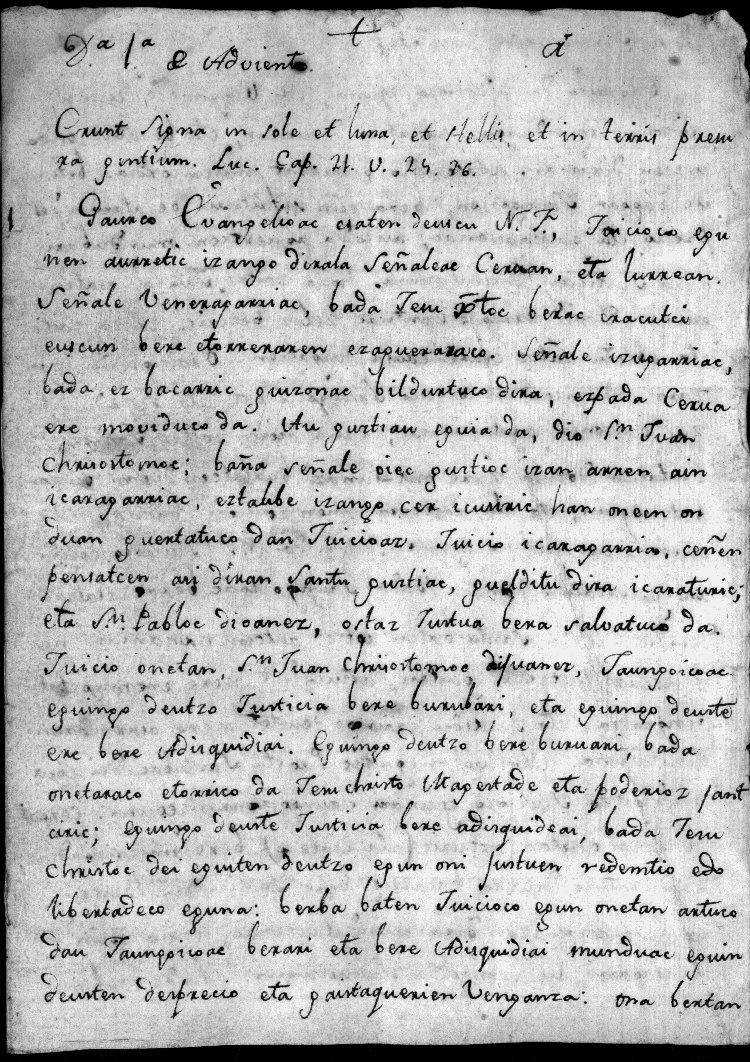 +
D.ª 1.ª de Adviento.
Erunt signa in sole et luna, et stellis, et in terris presu
ra gentium. Luc. Cap. 21. V. 25. 26.
Gaurco Evangelioac esaten deuscu N. F., Juicioco egu
nen aurretic izango dirala Señaleac Ceruan, eta lurrean.
Señale Veneragarriac, bada Jesu xptoc berac eracutci
euscun bere etorreraren ezagueraraco. Señale izugarriac,
bada ez bacarric guizonac bildurtuco dira, ezpada Cerua
ere moviduco da. Au guztiau eguia da, dio S.n Juan
Chrisostomoc; baña señale oiec guztioc izan arren ain
icaragarriac, eztabe izango cer icusiric han oneen on
duan guertatuco dan Juicioaz. Juicio icaragarria, ceñen
pensatcen asi diran Santu guztiac, guelditu dira icaraturic;
eta S.n Pabloc dioanez, ostaz Justua bera salvatuco da.
Juicio onetan, S.n Juan Chrisostomoc diñuanez, Jaungoicoac
eguingo deutzo Justicia bere buruari, eta eguingo deuste
ere bere Adisquidiai. Eguingo deutzo bere buruari, bada
onetaraco etorrico da Jesuchristo Magestade eta poderioz jant
ciric; Eguingo deuste Justicia bere adisquideai, bada Jesu
Christoc dei eguiten deutzo egun oni justuen redemtio edo
libertadeco eguna: berba baten Juicioco egun onetan artuco
dau Jaungoicoac berari eta bere Adisquidiai munduac eguin
deusten desprecio eta gaistaquerien Venganza: ona bertan